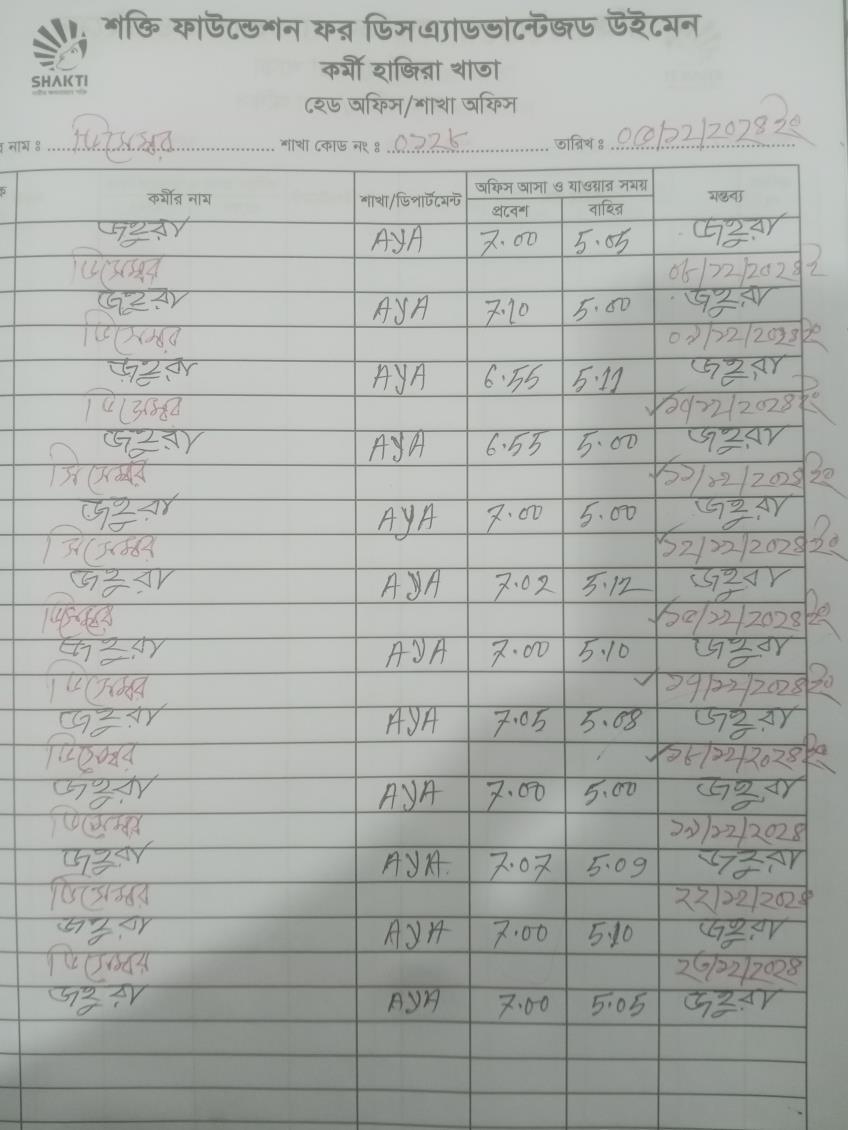 শক্তি ফাউন্ডেশন ফর ডিসএ্যাডভান্টেজড উইমেন
SHAKTI
কর্মী হাজিরা খাতা
হেড অফিস/শাখা অফিস
নাম : ডিসেম্বর শাখা কোড নং : ০১২৮ তারিখ : /১২/২০২৪ ইং
কর্মীর নাম শাখা/ডিপার্টমেন্ট অফিস আসা ও যাওয়ার সময় মন্তব্য
প্রবেশ বাহির
জহুরা AYA 7.00 5.05 জহুরা
ডিসেম্বর ০৮/১২/২০২৪ ইং
জহুরা AYA 7.10 5.00 জহুরা
ডিসেম্বর ০৯/১২/২০২৪ ইং
জহুরা AYA 6.55 5.11 জহুরা
ডিসেম্বর ১০/১২/২০২৪ ইং
জহুরা AYA 6.55 5.00 জহুরা
ডিসেম্বর ১১/১২/২০২৪ ইং
জহুরা AYA 7.00 5.00 জহুরা
ডিসেম্বর ১২/১২/২০২৪ ইং
জহুরা AYA 7.02 5.12 জহুরা
ডিসেম্বর ১৫/১২/২০২৪ ইং
জহুরা AYA 7.00 5.10 জহুরা
ডিসেম্বর ১৭/১২/২০২৪ ইং
জহুরা AYA 7.05 5.08 জহুরা
ডিসেম্বর ১৮/১২/২০২৪ ইং
জহুরা AYA 7.00 5.00 জহুরা
ডিসেম্বর ১৯/১২/২০২৪
জহুরা AYA 7.07 5.09 জহুরা
ডিসেম্বর ২২/১২/২০২৪
জহুরা AYA 7.00 5.10 জহুরা
ডিসেম্বর ২৩/১২/২০২৪
জহুরা AYA 7.00 5.05 জহুরা